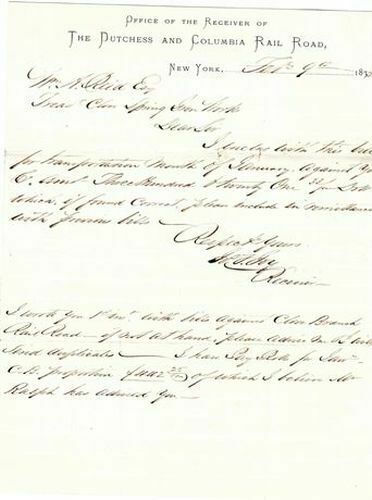 OFFICE OF THE RECEIVER OF
THE DUTCHESS AND COLUMBIA RAIL ROAD,
NEW YORK, Feb 9th 187
Wm A. Reid Esq
Treas Clove Spring Iron Works
Dear Sir
I enclose with this
for transportation Month of January Against
Three Hundred & Twenty One
Which, if found Correct, please include in remittance
with previous bills
Respect Yours
Receiver
I wrote you 1st with bills Against Clove Branch
Rail Road – if not At hand, please Advise
Send duplicates – I have Pay
C.B. proportion of which I believe Mr
Ralph has advised You –